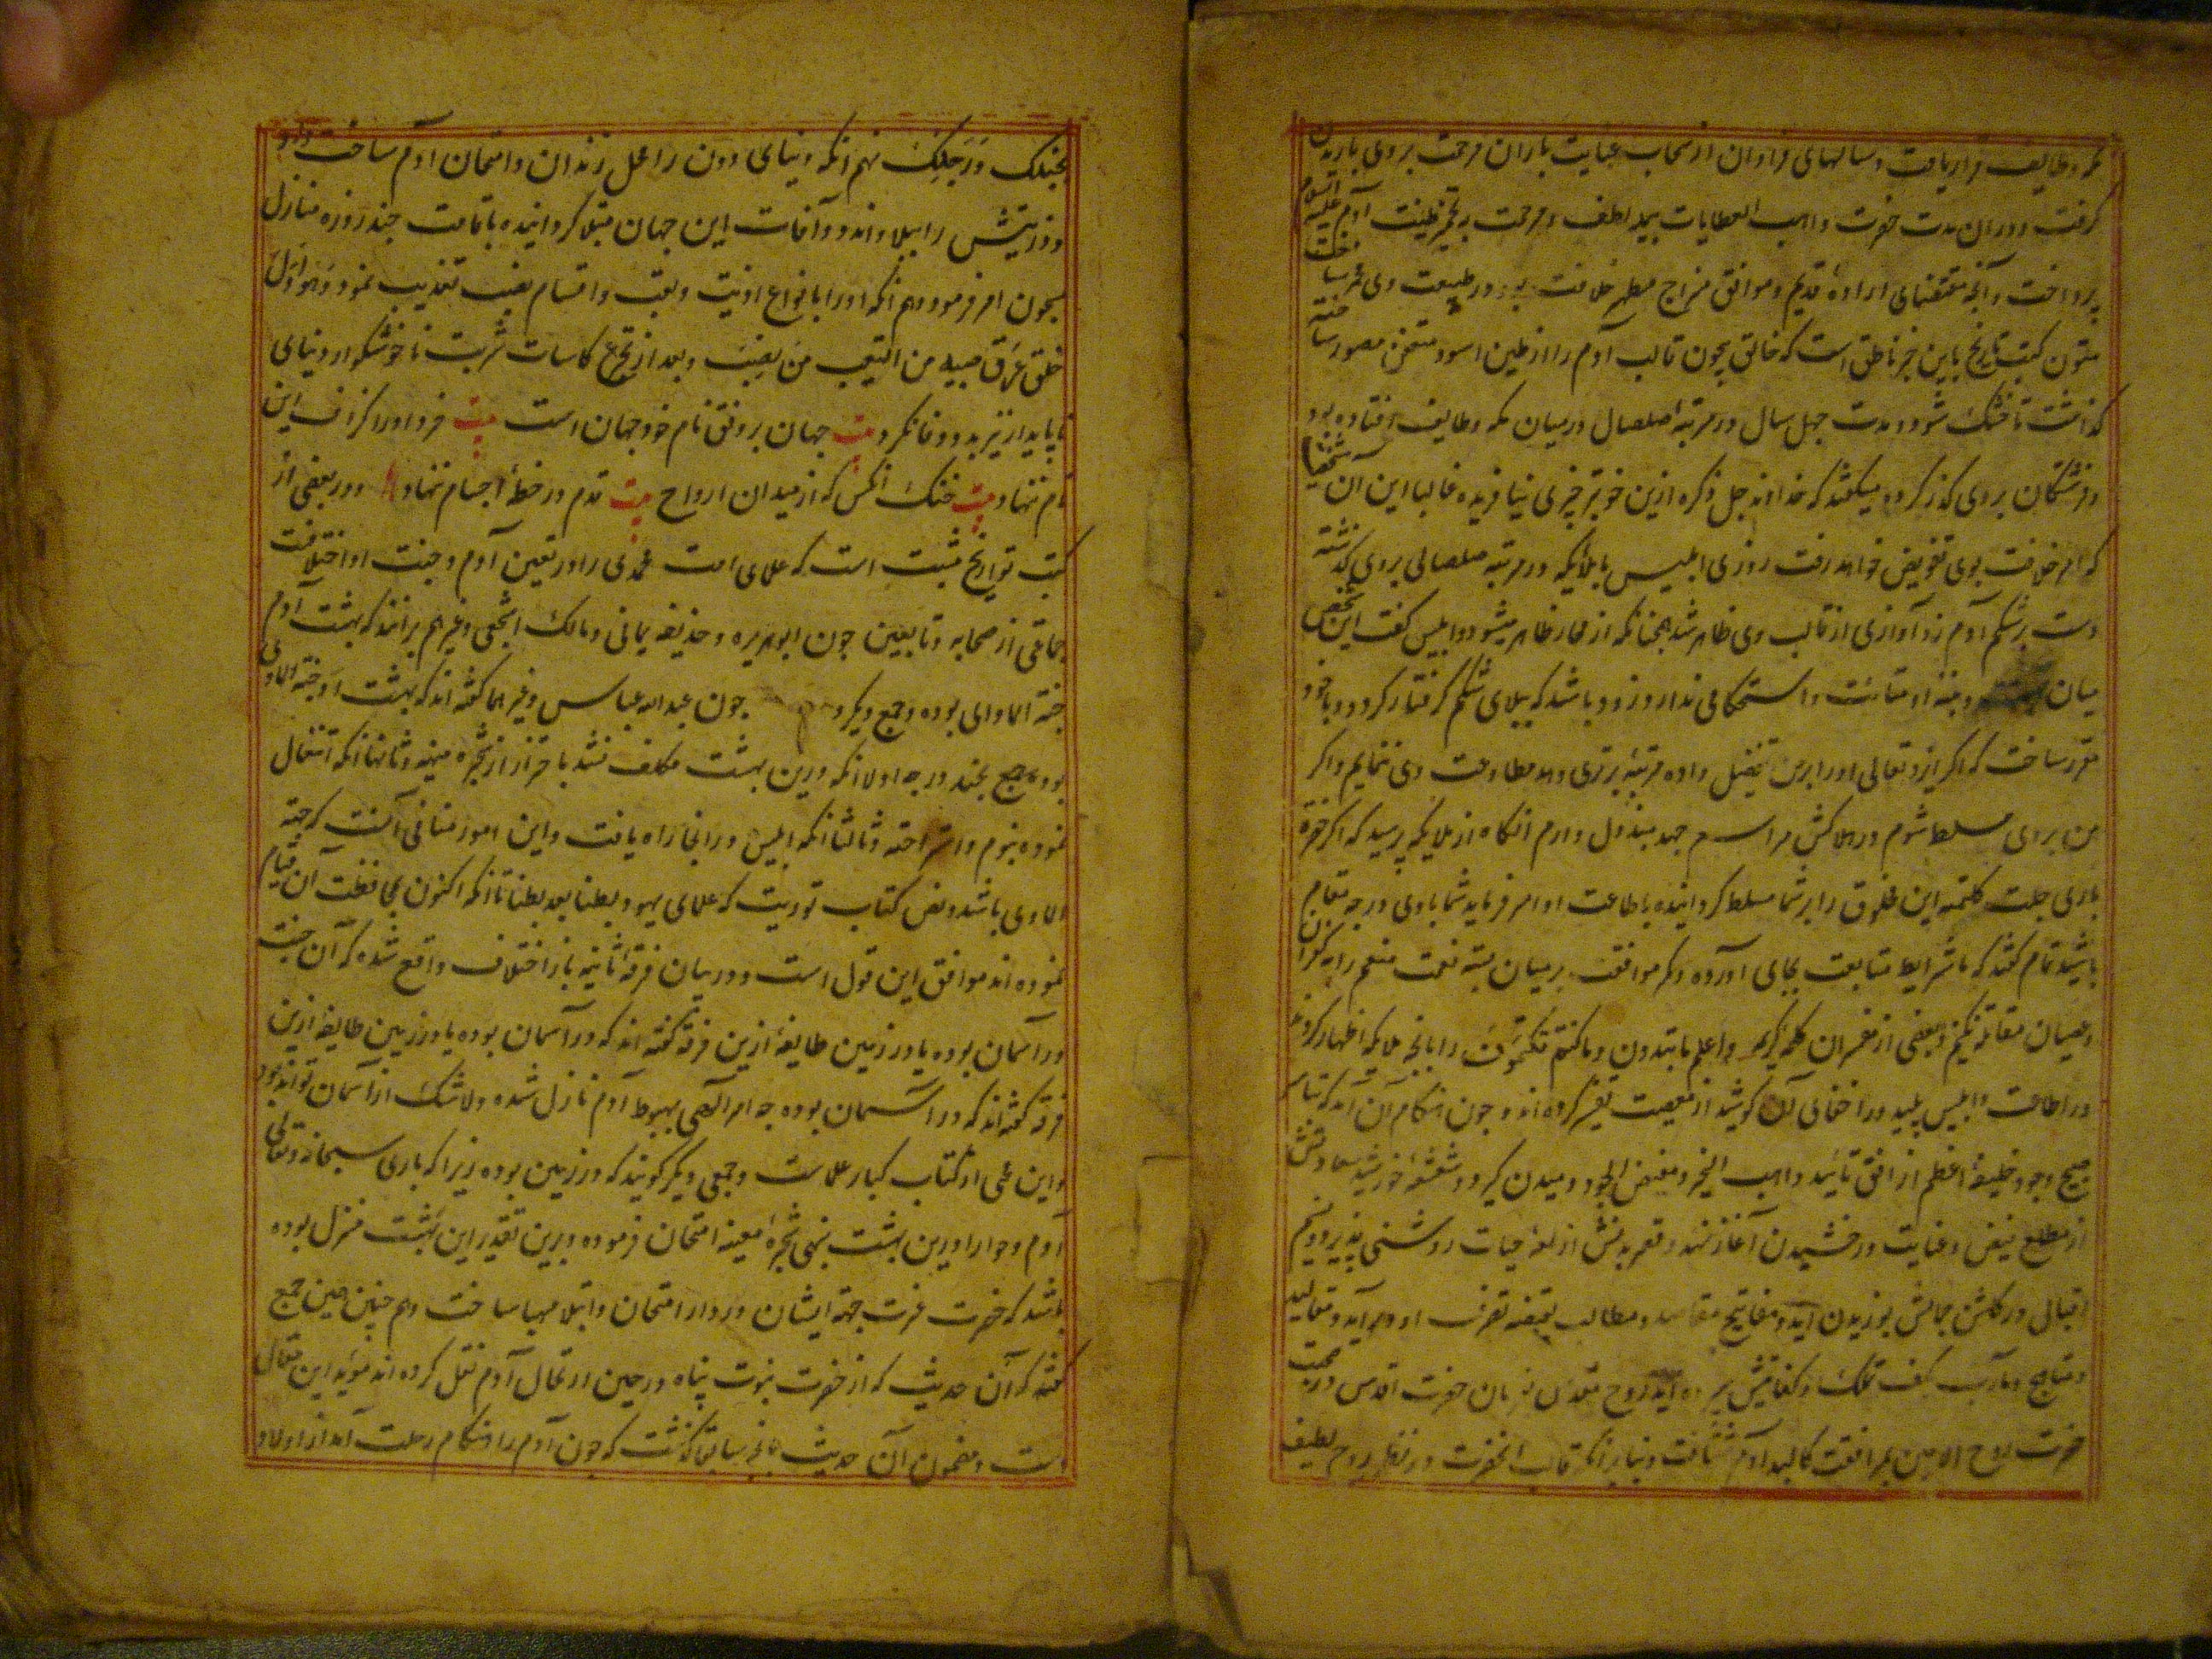 مکه و طایف قرار یافت و سالهای فراوان از سحاب عنایت باران مرحمت بر وی باریدن
گرفت و در آن مدت حضرت واهب العطایات بید لطف و مرحمت به تخمیر طینت آدم علیه السلام
پرداخت و آنچه مقتضای اراده قدیم و موافق مزاج مظهر خلافت بود در طبیعت وی غرس ساخت
متون کتب تاریخ باین خبر ناطق است که خالق بیچون قالب آدم را از طین اسود متعفن مصور ساخته
گذاشت تا خشک شود و مدت چهل سال در مرتبه صلصال در میان مکه و طایف افتاده بود
و فرشتگان بر وی گذر کرده میگفتند که خداوند جل ذکره ازین خوبتر چیزی نیافریده غالبا این آن شخص
که امر خلافت بوی تفویض خواهد رفت روزی ابلیس با ملائکه در مرتبه صلصالی بر وی گذشته
دست بر شکم آدم زد آوازی از قالب وی ظاهر شد همچنانکه از فخار ظاهر میشود و ابلیس گفت این شخص
میان و بنیه او متانت و استحکامی ندارد زود باشد که ببلای شکم گرفتار گردد و با خود
مقرر ساخت که اگر ایزد تعالی او را بر من تفضیل داده مرتبه برتری دهد مطاوعت وی ننمایم و اگر
من بر وی مسلط شوم در هلاکش مراسم جهد مبذول دارم آنگاه از ملایکه پرسید که اگر حضرت
باری جلت کلمته این مخلوق را بر شما مسلط گردانیده باطاعت او امر فرماید شما با وی در چه مقام
باشید تمام گفتند که ما شرایط متابعت بجای آورده و کمر موافقت بر میان بسته نعمت منعم را به کفران
و عصیان مقابله نکنیم و بعضی از مفسران کلمه کریمه و اعلم ما تبدون و ما کنتم تکتمون را بآنچه ملایکه اظهار کردند
در اطاعت و ابلیس پلید در اخفای آن کوشید از معصیت تفسیر کرده اند و چون هنگام آن آمد که تباشیر
صبح وجود خلیفه اعظم از افق تأیید واهب الخیر و مفیض الجود دمیدن گیرد و شعشعه خورشید سعادتش
از مطلع فیض و عنایت درخشیدن آغاز نهد و قصر بدنش از لمعه حیات روشنی پذیرد و نسیم
اقبالی در گلشن جمالش بوزیدن آید و مفاتیح مقاصد و مطالب بقبضه تصرف او در آید و مقالید
و مناجح و مآرب بکف تملک و کفایتش سپرده آید روح مقدس بفرمان حضرت اقدس در صحبت
حضرت روح الامین بمرافقت کالبد آدم شتافت و بنابر آنکه قالب آنحضرت در نظر روح لطیف
بخیلک و رجلک نهم آنکه دنیای دون را محل زندان و امتحان آدم ساخت و او
و ذریتش را ببلا و اندوه و آفات این جهان مبتلا گردانیده باقامت چند روزه منازل
سجون امر فرمود دهم آنکه او را بانواع اذیت و تعب و اقسام نصب تعذیب نمود و هو اول
خلق عرق جبینه من التعب من نصب و بعد از تجرع کاسات شربت ناخوشگوار دنیای
ناپایدار نیز بدو وفا نکرد بیت جهان بر وفق نام خود جهان است بیت فرو اورا گزاف این
نام ننهاد بیت خنک آنکس که از میدان ارواح بیت قدم در خطه اجسام ننهاد و در بعضی از
کتب تواریخ مثبت است که علمای امت محمدی را در تعیین آدم و جنت او اختلافست
جماعتی از صحابه و تابعین چون ابوهریره و حذیفه یمانی و مالک اشجعی و غیرهم برانند که بهشت آدم
جنه الماوای بوده و جمع دیگر چون عبدالله عباس و غیر هما گفته اند که بهشت او جنه الماوی
بوده بچند درجه اولا آنکه درین بهشت مکلف نشد باحتراز از شجره منهیه و ثانیا آنکه اشتغال
نموده بنوم و استراحت و ثالثا آنکه ابلیس در آنجا راه یافت و این امور منافی آنست که جنه
الماوی باشد و نص کتاب توریت که علمای یهود بطنا بعد بطنا تا آنکه اکنون بمحافظت آن قیام
نموده اند موافق این قول است و در میان فرقه ثانیه باز اختلاف واقع شده که آن جنت
در آسمان بوده یا در زمین طایفه ازین فرقه گفته اند که در آسمان بوده یا در زمین طایفه ازین
فرقه گفته اند که در آسمان بوده چه امر الهی بهبوط آدم نازل شده ولا شک از آسمان تواند بود
و این مختار کبار علماست و جمعی دیگر گویند که در زمین بوده زیرا که باری سبحانه و تعالی
آدم و حوا را درین بهشت بنهی شجره معینه امتحان فرموده و برین تقدیر این بهشت منزل بوده
باشد که حضرت عزت بجهة ایشان در دار امتحان و ابتلا مهیا ساخت و هم چنین جمع
گفته که آن حدیث که از حضرت نبوت پناه در حین ارتحال آدم نقل کرده اند مؤید این مقال
است و مضمون آن حدیث چنانچه سابقا گذشت که چون آدم را هنگام رحلت آمد از اولاد